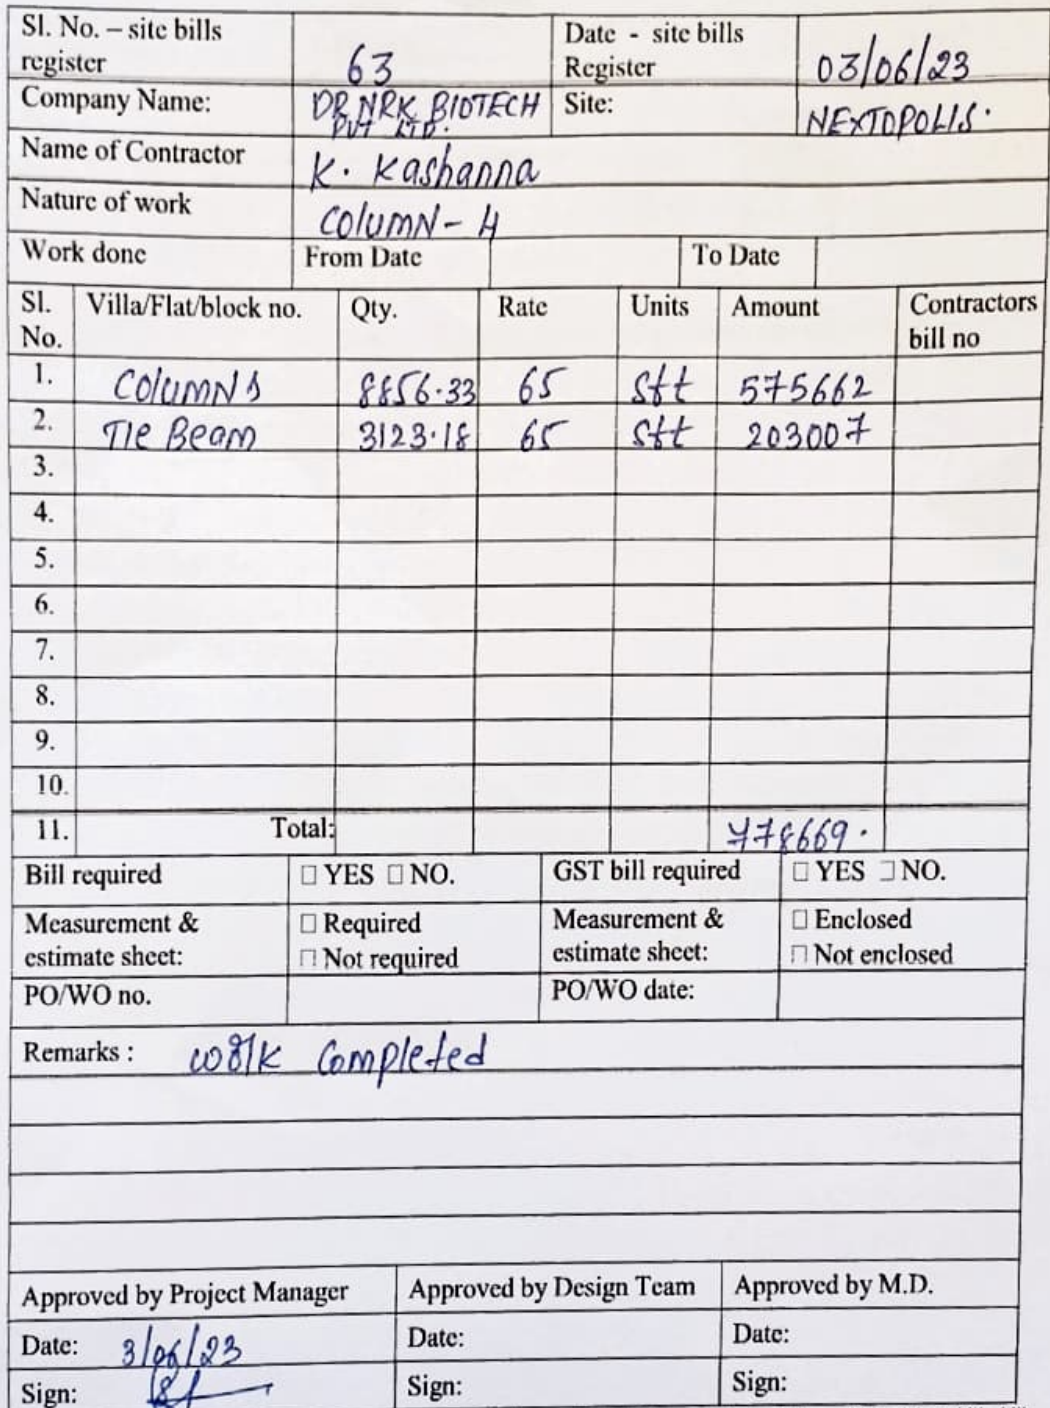 Sl. No. – site bills register 63 Date - site bills Register 03/06/23
Company Name: DR NRK BIOTECH PVT LTD. Site: NEXTOPOLIS.
Name of Contractor K. Kashanna
Nature of work COLUMN - 4
Work done From Date To Date
Sl. No. Villa/Flat/block no. Qty. Rate Units Amount Contractors bill no
1. COLUMNS 8856.33 65 Sft 575662
2. TIE Beam 3123.18 65 Sft 203007
3.
4.
5.
6.
7.
8.
9.
10.
11. Total: 778669.
Bill required □ YES □ NO. GST bill required □ YES □ NO.
Measurement & estimate sheet: □ Required □ Not required Measurement & estimate sheet: □ Enclosed □ Not enclosed
PO/WO no. PO/WO date:
Remarks : work completed
Approved by Project Manager Approved by Design Team Approved by M.D.
Date: 3/06/23 Date: Date:
Sign: Sign: Sign: